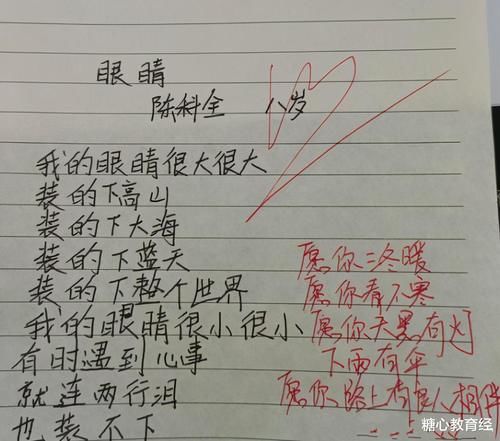 眼睛
陈科全 八岁
我的眼睛很大很大
装的下高山
装的下大海
装的下蓝天
装的下整个世界
我的眼睛很小很小
有时遇到心事
就连两行泪
也装不下
愿你三冬暖
愿你春不寒
愿你天黑有灯
下雨有伞
愿你路上有良人相伴
糖心教育经